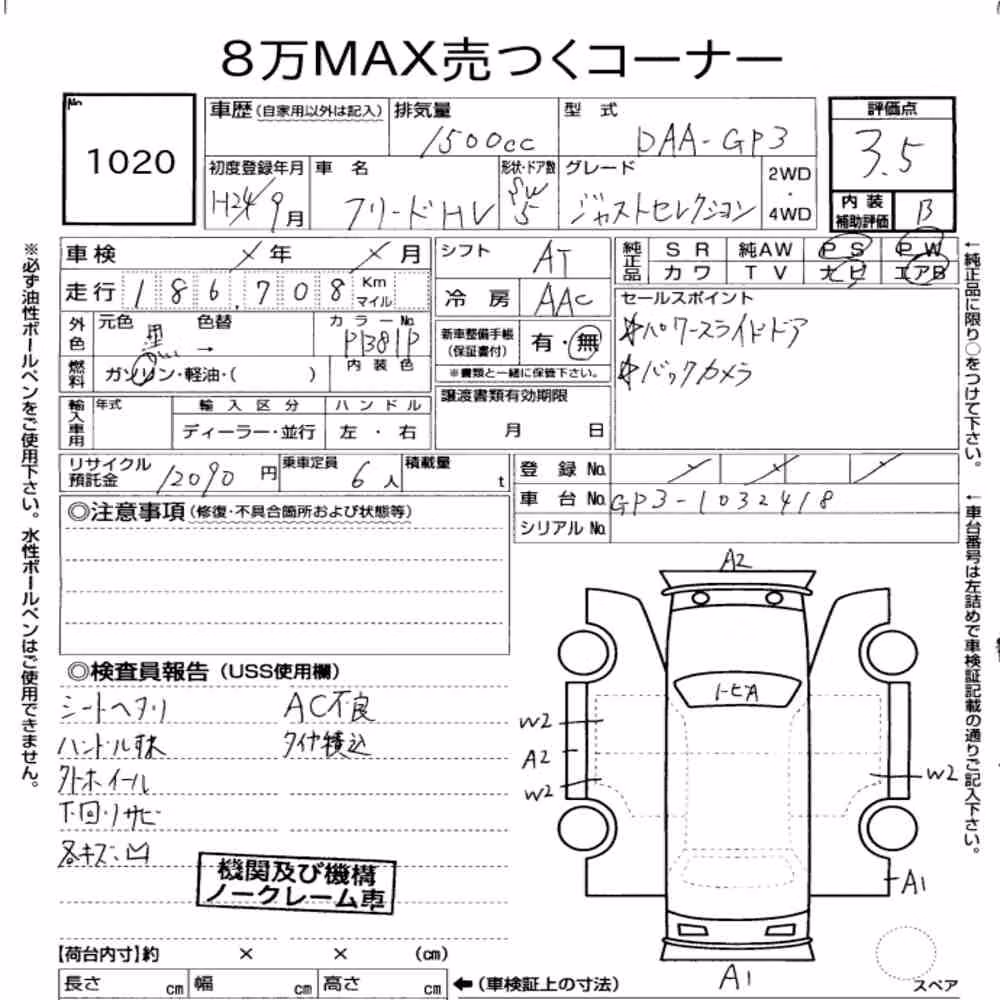 8万MAX売つくコーナー
No
1020
車歴(自家用以外は記入)
排気量
1500cc
型式
DAA-GP3
評価点
3.5
初度登録年月
H24/9月
車名
フリードHV
形状・ドア数
SW
5
グレード
ジャストセレクション
2WD
・
4WD
内装
補助評価
B
車検 年 月
シフト
AT
純正品
SR 純AW PS PW
カワ TV ナビ エアB
走行 186,708 Km
マイル
冷房
AAC
セールスポイント
パワースライドドア
バックカメラ
外色
元色
黒
色替
→
カラーNo.
PB81P
新車整備手帳
(保証書付)
有・無
※書類と一緒に保管下さい。
燃料
ガソリン・軽油・( )
内装色
輸入車用
年式
輸入区分
ハンドル
ディーラー・並行
左・右
譲渡書類有効期限
月 日
リサイクル
預託金
12090円
乗車定員
6人
積載量
t
登録No.
車台No. GP3-1032418
シリアルNo.
◎注意事項(修復・不具合箇所および状態等)
◎検査員報告(USS使用欄)
シートヘタリ AC不良
ハンドル球 タイヤ積込
外ホイール
下回りサビ
各キズ・凹
機関及び機構
ノークレーム車
【荷台内寸】約 × × (cm)
長さ cm 幅 cm 高さ cm
←(車検証上の寸法)
A2
トビA
W2
A2
W2
W2
A1
A1
スペア
※必ず油性ボールペンをご使用下さい。水性ボールペンはご使用できません。
←純正品に限り○をつけて下さい。
←車台番号は左詰めで車検証記載の通りご記入下さい。